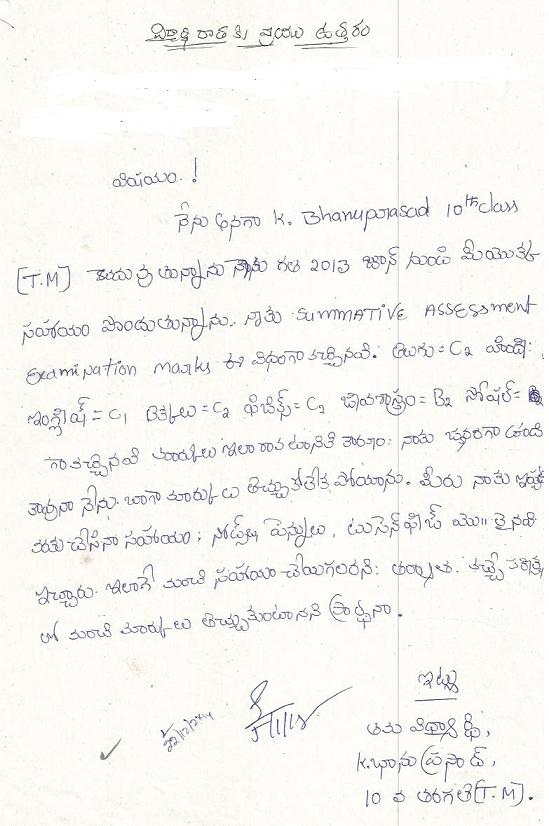 విద్యార్థి రాత కు వ్రాయు ఉత్తరం
విషయం. !
నేను అనగా K. Bhanuprasad 10th class
[T.M] చదువుతున్నాను నేను గత 2013 జూన్ నుండి మీయొక్క
సహాయం పొందుతున్నాను. నాకు SUMMATIVE ASSESSment
Examination marks ఈ విధంగా వచ్చినవి. తెలుగు = C2 హింది:
ఇంగ్లీష్ = C1 లెక్కలు = C2 ఫిజిక్స్ = C2 జీవశాస్త్రం = B2 సోషల్ =
గా వచ్చినవి మార్కులు ఇలా రావటానికి కారణం: నాకు జ్వరంగా ఉండి
కావునా నేను బాగా మార్కులు తెచ్చుకోలేక పోయాను. మీరు నాకు ఇప్ప
వరకు చేసినా సహాయం; నోట్స్, పెన్నులు, టుసెన్ ఫీజ్ మొ॥ లైనవి
ఇచ్చారు. ఇలాగే మంచి సహాయం చేయగలరని: తర్వాత వచ్చే పరీక్ష
లో మంచి మార్కులు తెచ్చుకుంటానని ప్రార్థనా.
ఇట్లు
తమ విధ్యార్థి,
K. భాను ప్రసాద్,
10 వ తరగతి [T.M].
22/12/2014